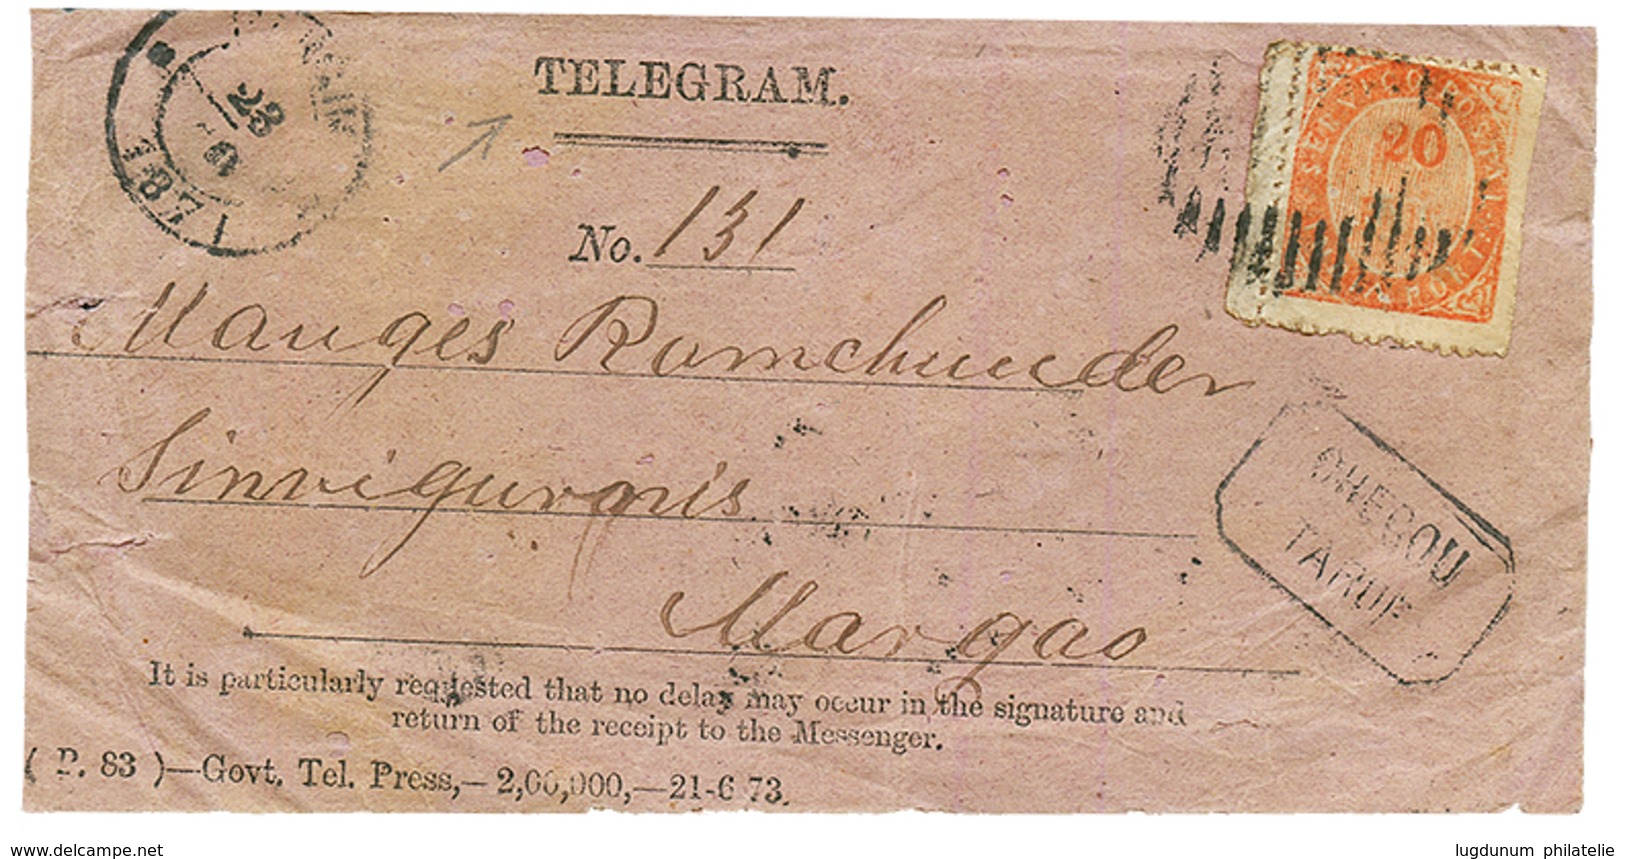 TELEGRAM.
187
23
SERVIÇO POSTAL
20
INDIA PORT.
No. 131
Manges Ramchunder
Sinvigurnis
Margao
CHEGOU
TARDE
It is particularly requested that no delay may occur in the signature and
return of the receipt to the Messenger.
( P. 83 )—Govt. Tel. Press,—2,00,000,—21-6 73.
delcampe.net
lugdunum philatelie